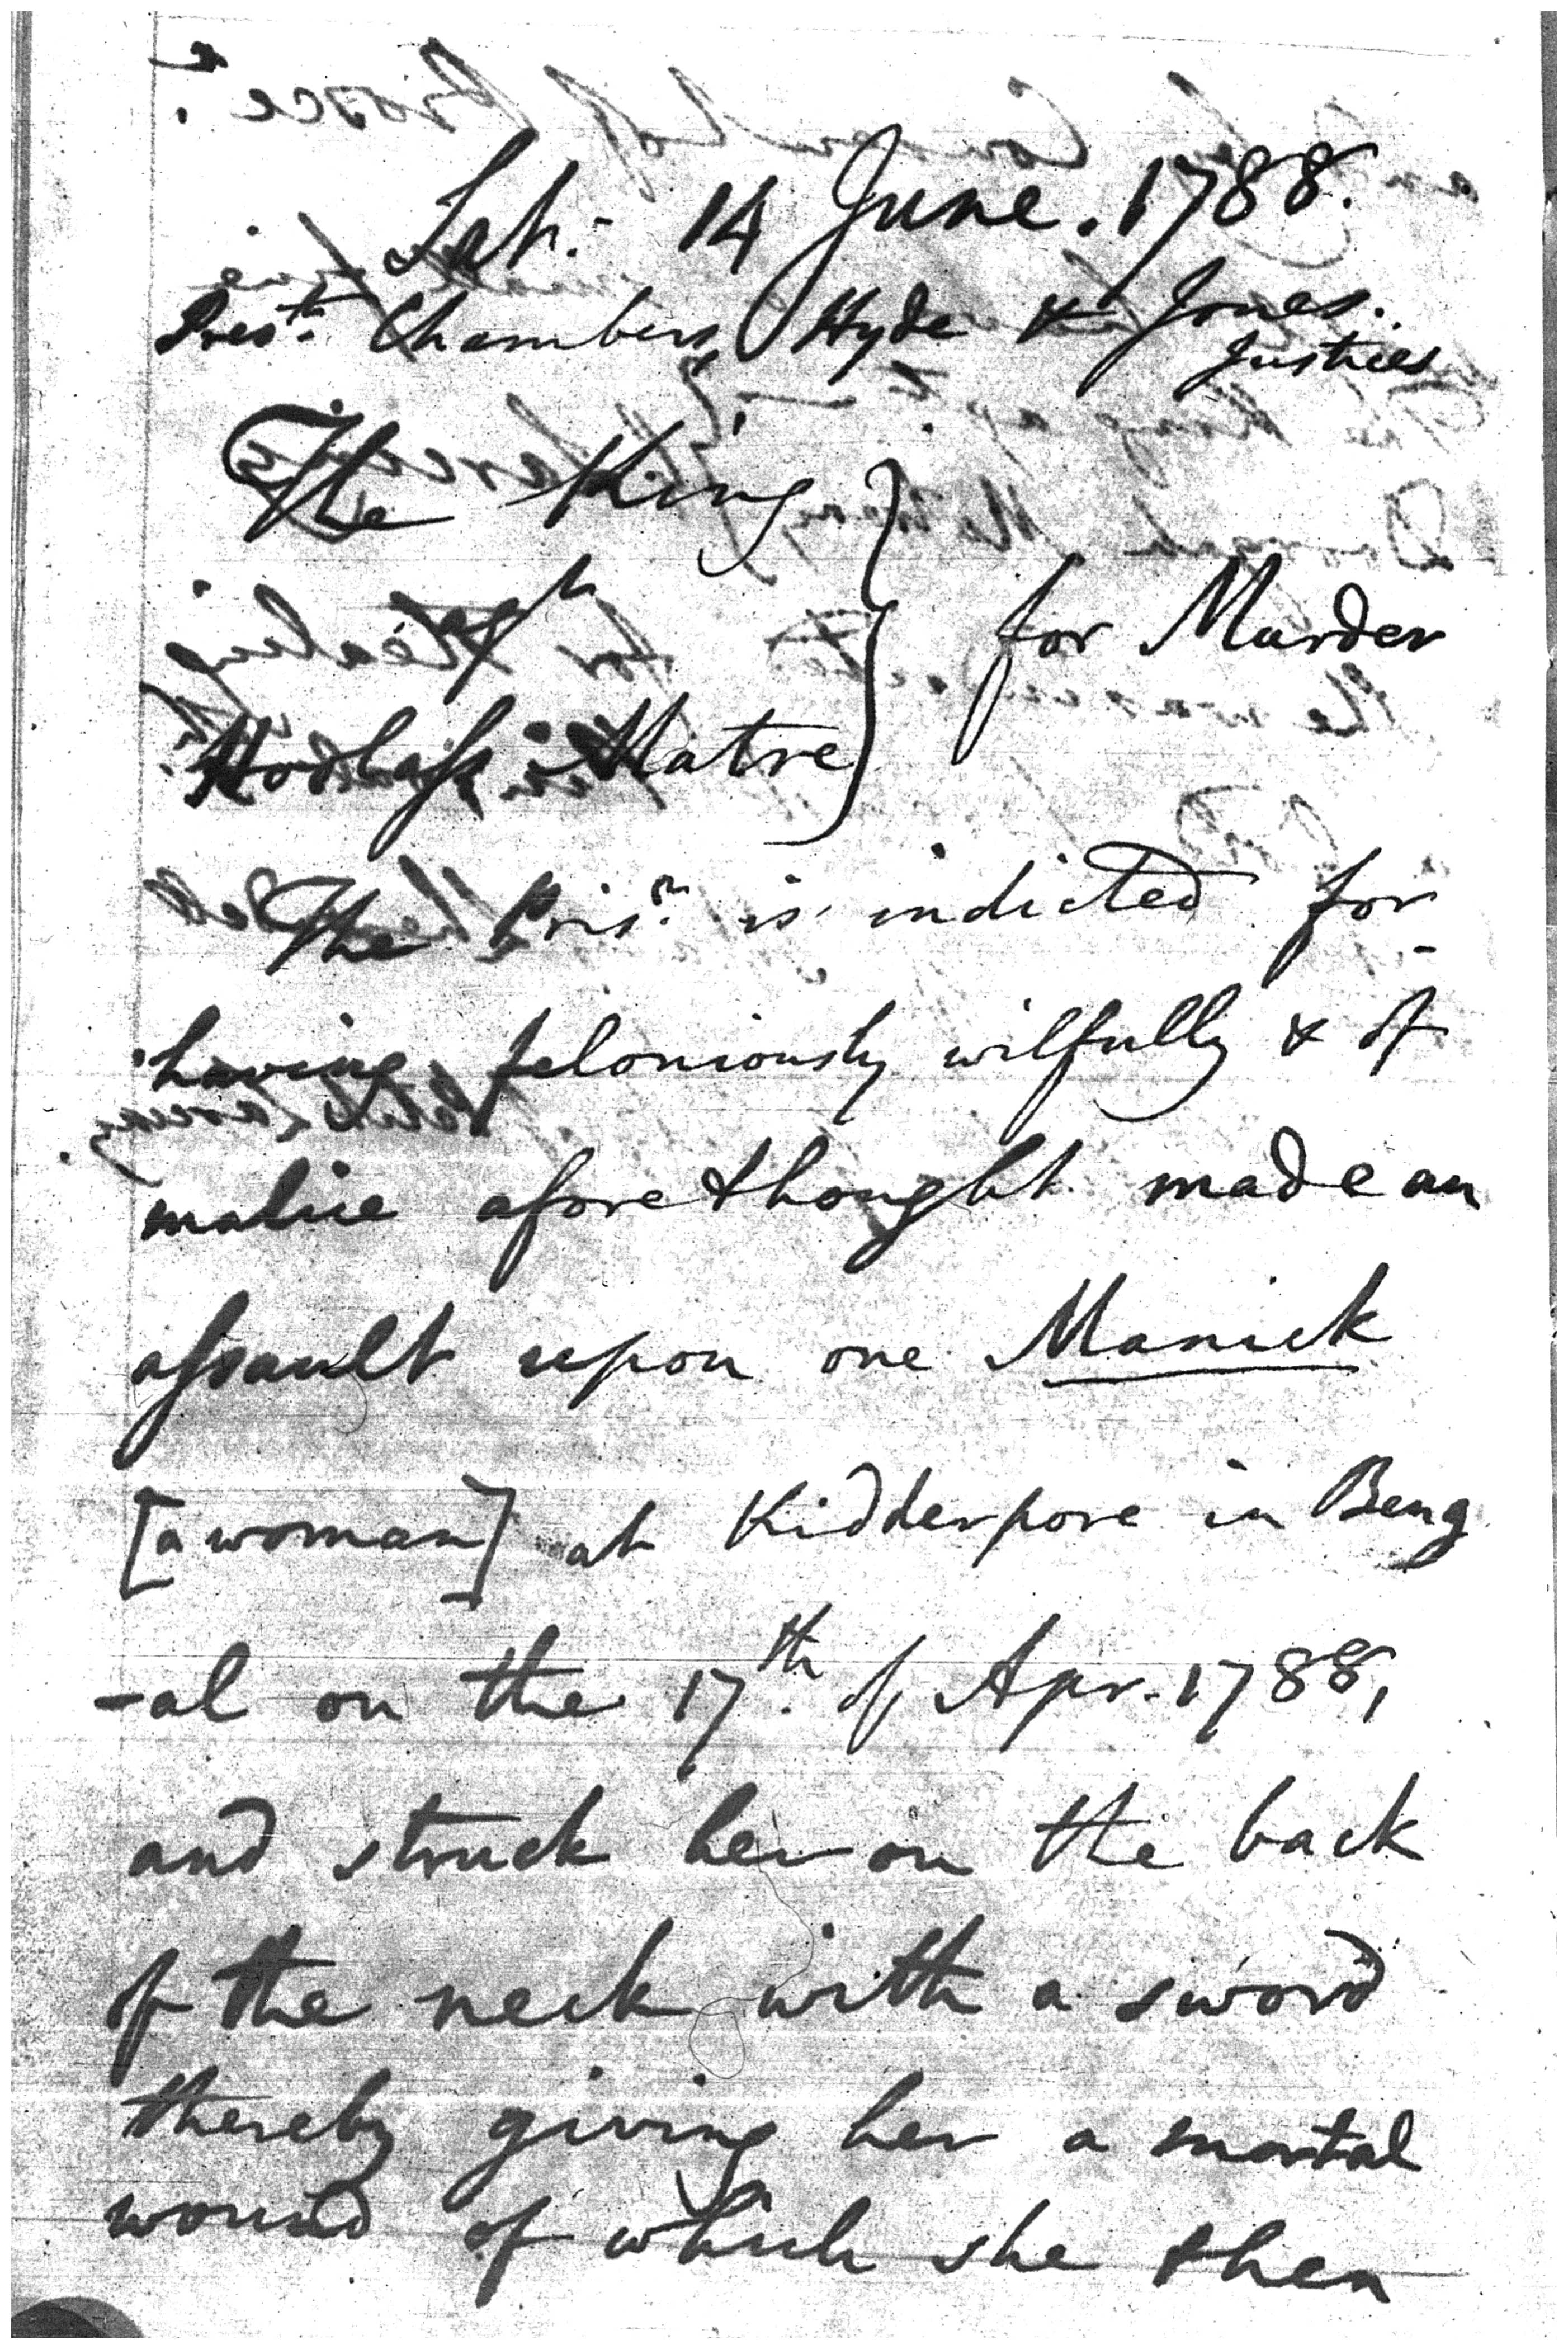 Sat. 14 June. 1788.
Pres.t Chambers, Hyde & Jones.
Justices
The King
agt
Matre
for Murder
The Pris.r is indicted for
having feloniously wilfully & of
malice aforethought made an
assault upon one Manick
[a woman] at Kidderpore in Beng
-al on the 17th of Apr. 1788,
and struck her on the back
of the neck with a sword
thereby giving her a mortal
wound of which she then